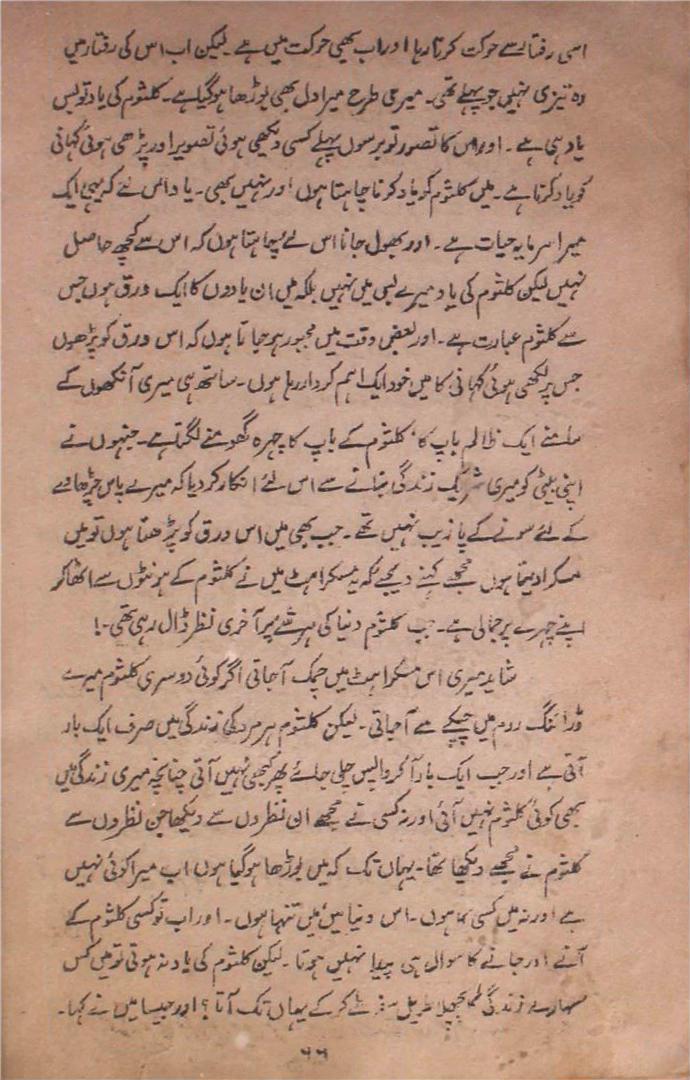 اسی رفتار سے حرکت کرتا رہا اور اب بھی حرکت میں ہے۔ لیکن اب اس کی رفتار میں
وہ تیزی نہیں جو پہلے تھی۔ میری طرح میرا دل بھی بوڑھا ہو گیا ہے۔ کلثوم کی یاد تو بس
یاد ہی ہے۔ اور اس کا تصور تو برسوں پہلے کسی دیکھی ہوئی تصویر اور پڑھی ہوئی کہانی
کو یاد کرنا ہے۔ میں کلثوم کو یاد کرنا چاہتا ہوں اور نہیں بھی۔ یاد اس لئے کہ یہی ایک
میرا سرمایہ حیات ہے۔ اور بھول جانا اس لئے چاہتا ہوں کہ اس سے کچھ حاصل
نہیں لیکن کلثوم کی یاد میرے بس میں نہیں بلکہ میں ان یادوں کا ایک ورق ہوں جس
سے کلثوم عبارت ہے۔ اور بعض وقت میں مجبور ہو جاتا ہوں کہ اس ورق کو پڑھوں
جس پر لکھی ہوئی کہانی کا میں خود ایک اہم کردار رہا ہوں۔ ساتھ ہی میری آنکھوں کے
سامنے ایک ظالم باپ کا، کلثوم کے باپ کا چہرہ گھومنے لگتا ہے۔ جنہوں نے
اپنی بیٹی کو میری شریک زندگی بنانے سے اس لئے انکار کر دیا کہ میرے پاس چڑھاوے
کے لئے سونے کے پازیب نہیں تھے۔ جب بھی میں اس ورق کو پڑھتا ہوں تو میں
مسکرا دیتا ہوں مجھے کہنے دیجئے کہ یہ مسکراہٹ میں نے کلثوم کے ہونٹوں سے اٹھا کر
اپنے چہرے پر جمالی ہے۔ جب کلثوم دنیا کی ہر شئے پر آخری نظر ڈال رہی تھی۔!
شاید میری اس مسکراہٹ میں چمک آ جاتی اگر کوئی دوسری کلثوم میرے
ڈرائنگ روم میں چپکے سے آ جاتی۔ لیکن کلثوم ہر مرد کی زندگی میں صرف ایک بار
آتی ہے اور جب ایک بار آ کر واپس چلی جائے پھر کبھی نہیں آتی چنانچہ میری زندگی میں
بھی کوئی کلثوم نہیں آئی اور نہ کسی نے مجھے ان نظروں سے دیکھا جن نظروں سے
کلثوم نے مجھے دیکھا تھا۔ یہاں تک کہ میں بوڑھا ہو گیا ہوں اب میرا کوئی نہیں
ہے اور نہ میں کسی کا ہوں۔ اس دنیا میں میں تنہا ہوں۔ اور اب تو کسی کلثوم کے
آنے اور جانے کا سوال ہی پیدا نہیں ہوتا۔ لیکن کلثوم کی یاد نہ ہوتی تو میں کس
سہارے زندگی کا پچھلا طویل سفر طے کر کے یہاں تک آتا؟ اور جیسا میں نے کہا۔
۶۶